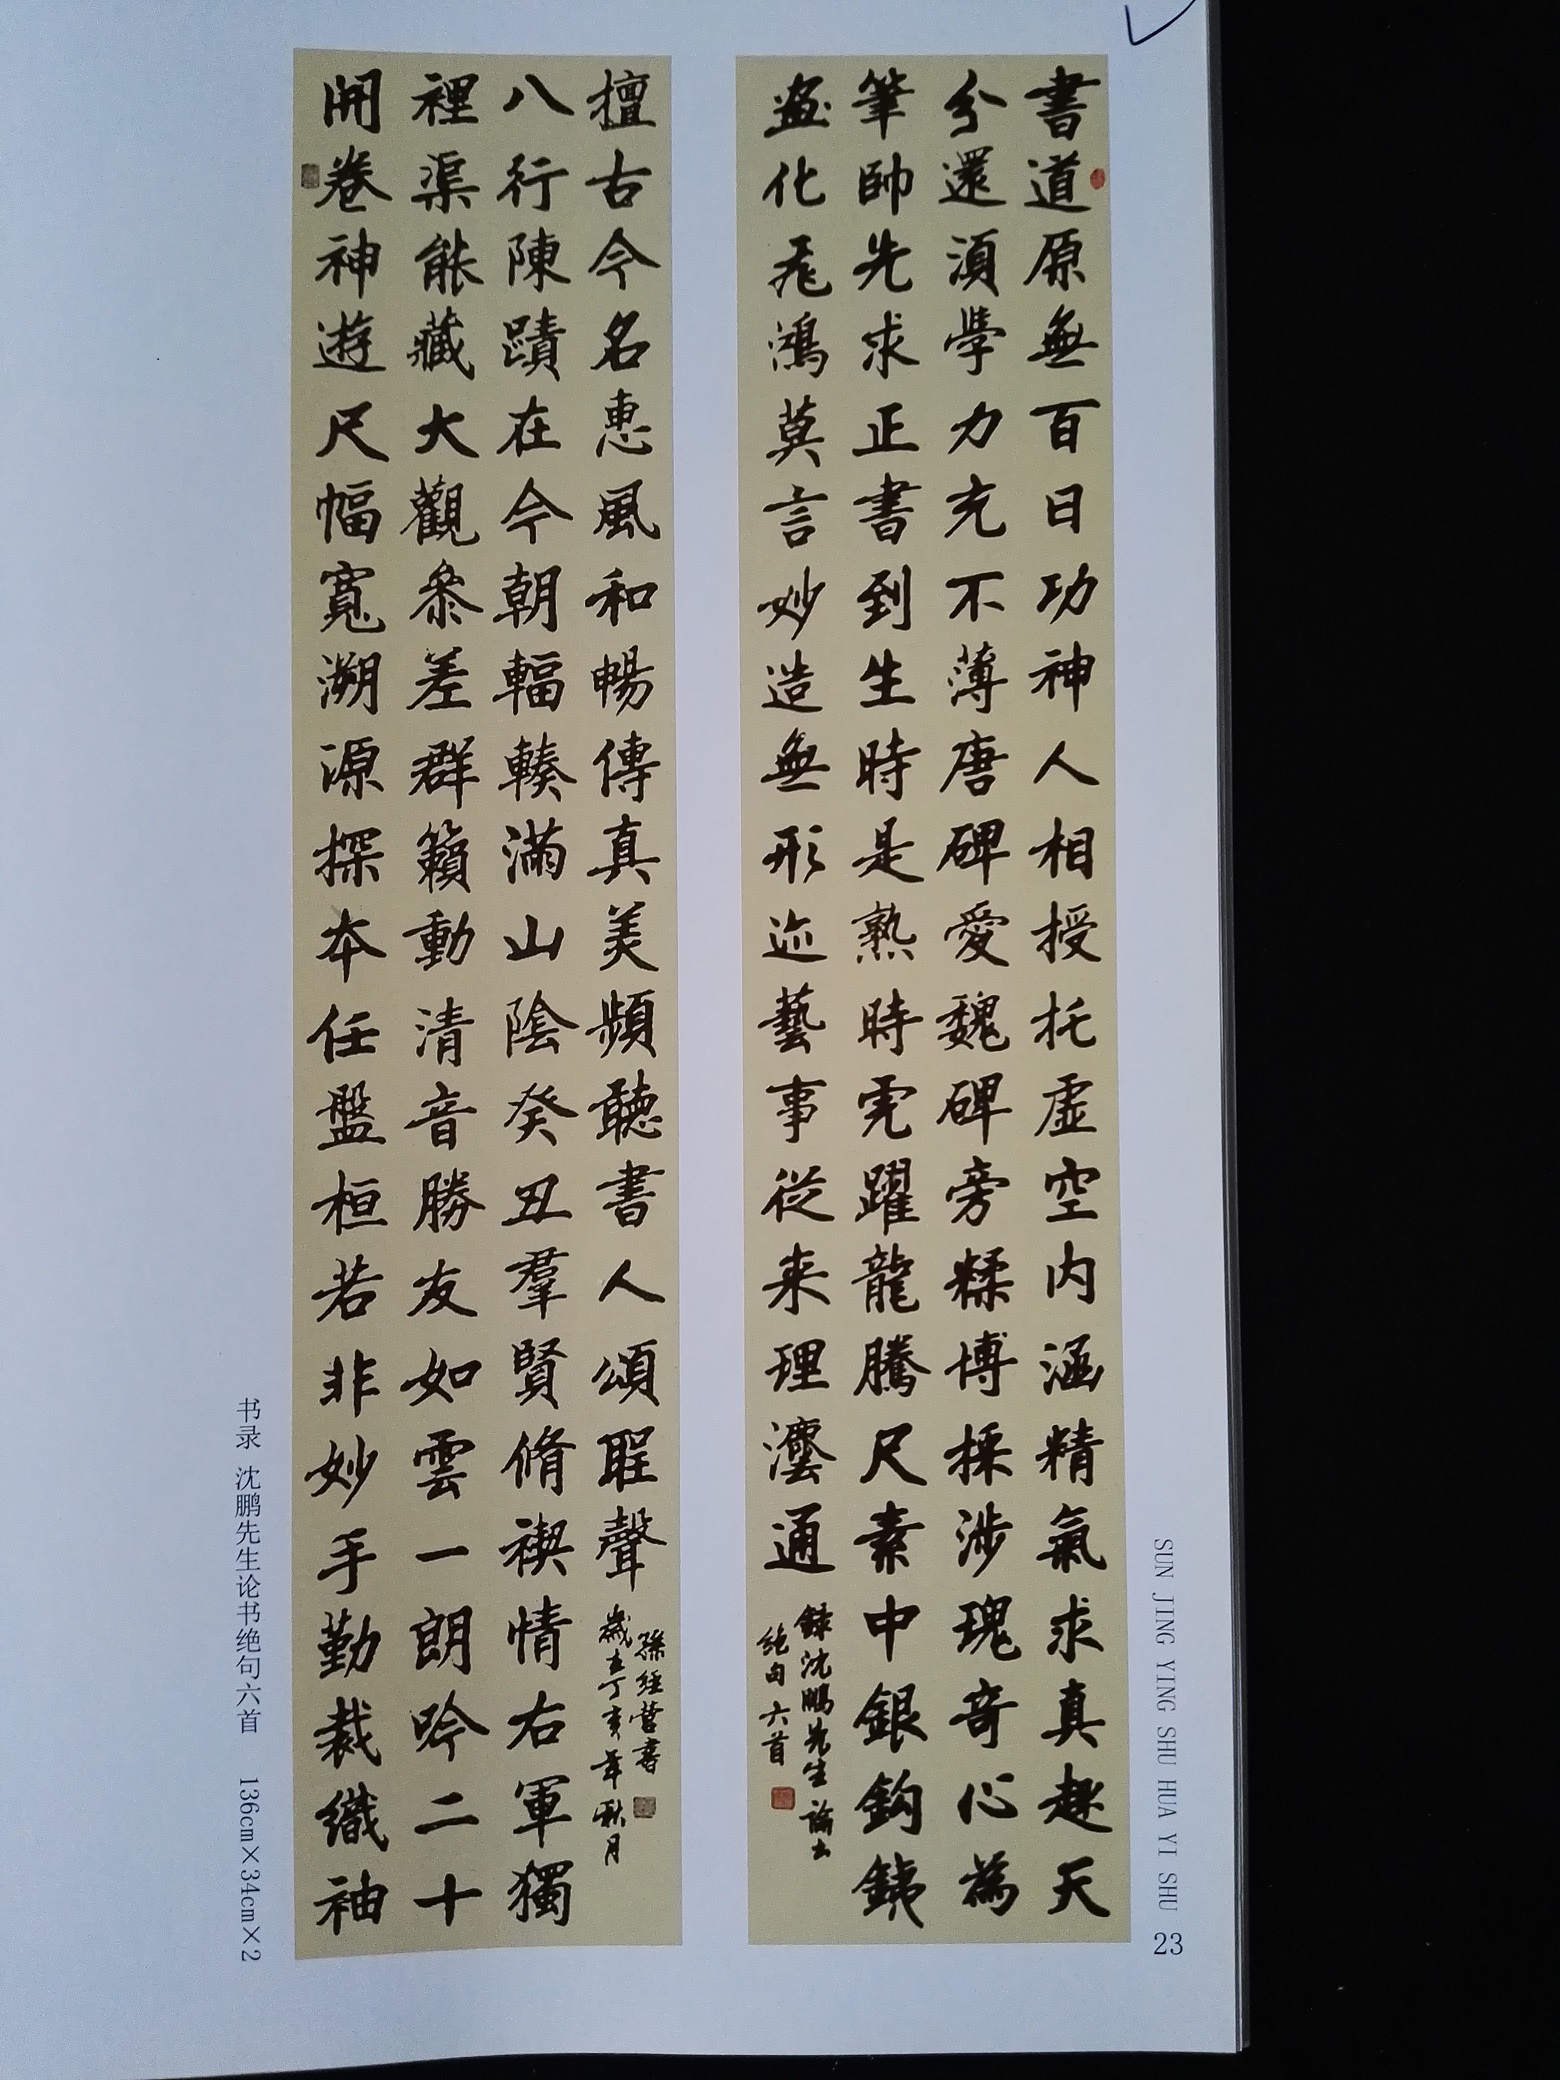 書道原無百日功神人相授托虛空内涵精氣求真趣天
分還須學力充不薄唐碑愛魏碑旁糅博採涉瑰奇心為
筆帥先求正書到生時是熟時虎躍龍騰尺素中銀鉤銕
畫化飛鴻莫言妙造無形迹藝事從來理灋通
錄沈鵬先生論書
絕句六首
開卷神遊尺幅寬溯源探本任盤桓若非妙手勤裁織袖
裡渠能藏大觀參差群籟動清音勝友如雲一朗吟二十
八行陳蹟在今朝輻輳滿山陰癸丑羣賢脩禊情右軍獨
擅古今名惠風和暢傳真美頻聽書人頌聖聲
歲在丁亥年秋月
孫經營書
书录 沈鹏先生论书绝句六首 136cm×34cm×2
SUN JING YING SHU HUA YI SHU
23